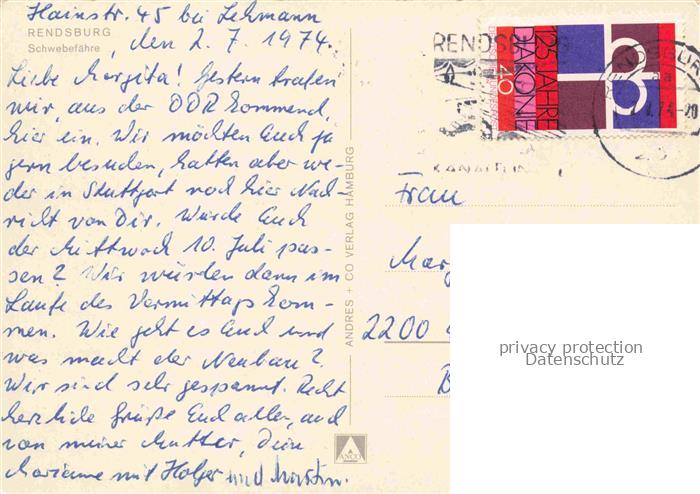 Hainstr. 45 bei Lehmann
RENDSBURG
Schwebefähre
, den 2.7.1974.
Liebe Margita! Gestern trafen
wir, aus der DDR kommend,
hier ein. Wir möchten Euch ja
gern besuchen, hatten aber we-
der in Stuttgart noch hier Nach-
richt von Dir. Würde Euch
der Mittwoch 10. Juli pas-
sen? Wir würden dann im
Laufe des Vormittags kom-
men. Wie geht es Euch und
was macht der Neubau?
Wir sind sehr gespannt. Recht
herzliche Grüße Euch allen, auch
von meiner Mutter, Deine
Marianne mit Holger und Martin.
ANDRES + CO VERLAG HAMBURG
ANCO
RENDSBURG
125 JAHRE
DIAKONIE
40
RENDSBURG
74-20
Frau
Marg
2200
privacy protection
Datenschutz